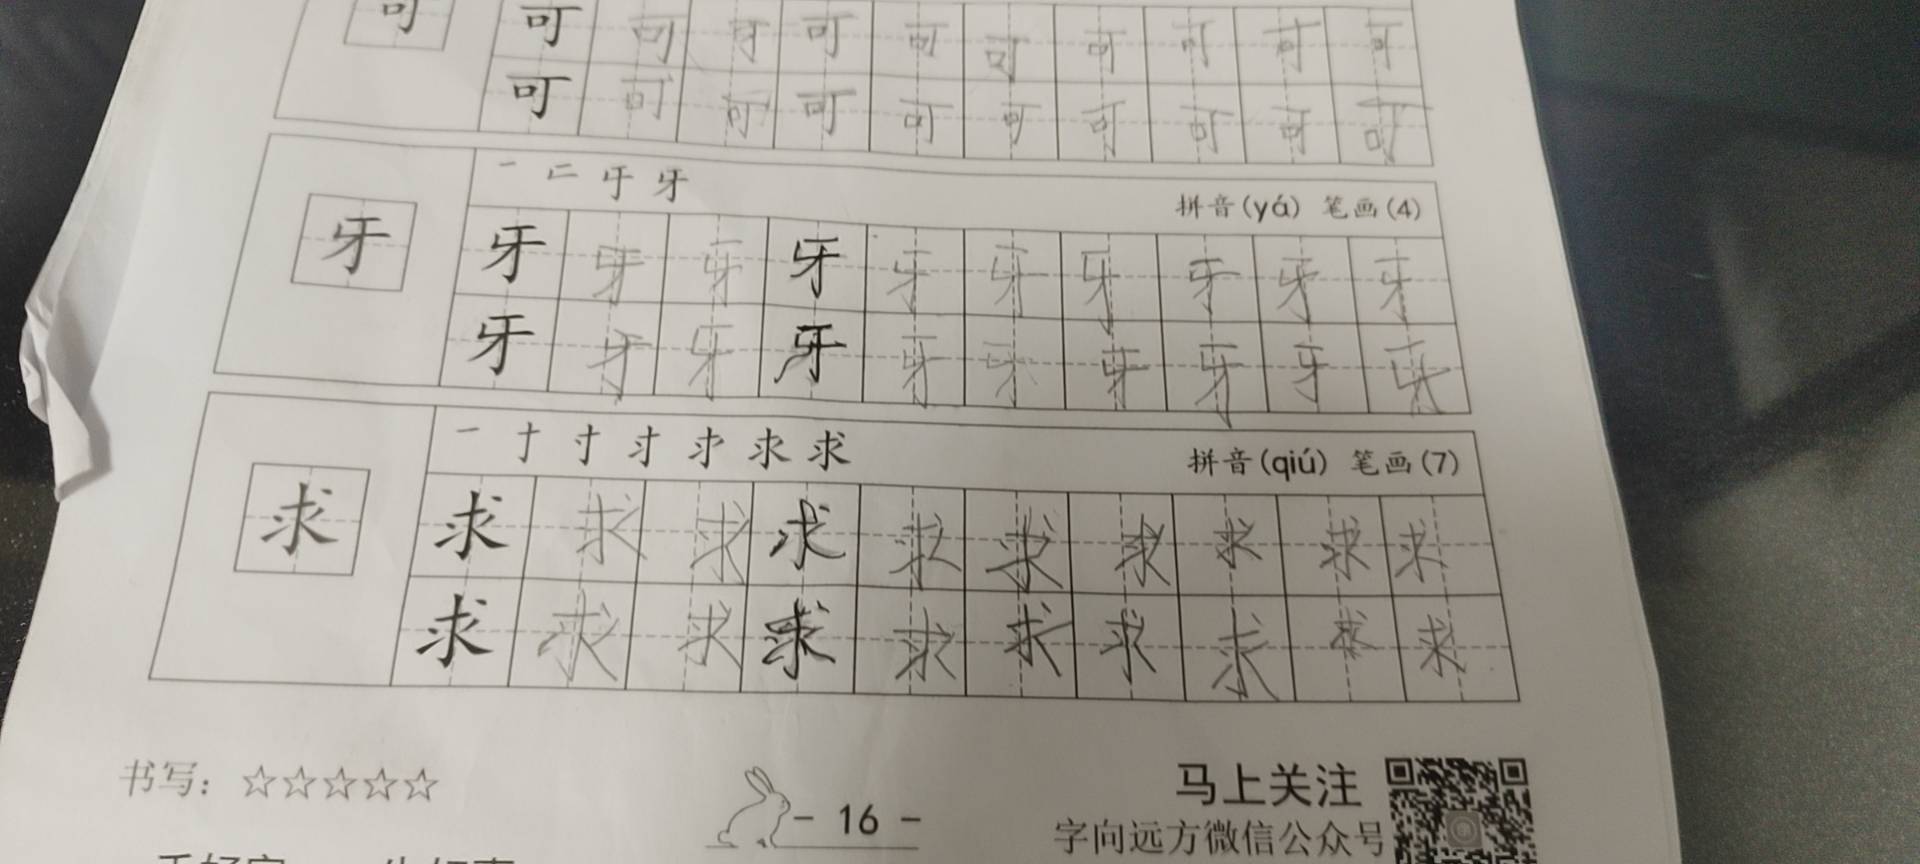 可 可 可 可 可 可 可 可 可 可 可
可 可 可 可 可 可 可 可 可 可
一 二 于 牙 拼音(yá) 笔画(4)
牙 牙 牙 牙 牙 牙 牙 牙 牙 牙 牙
牙 牙 牙 牙 牙 牙 牙 牙 牙 牙
求 拼音(qiú) 笔画(7)
求 求 求 求 求 求 求 求 求 求 求
求 求 求 求 求 求 求 求 求 求
书写：☆☆☆☆☆
- 16 -
马上关注
字向远方微信公众号